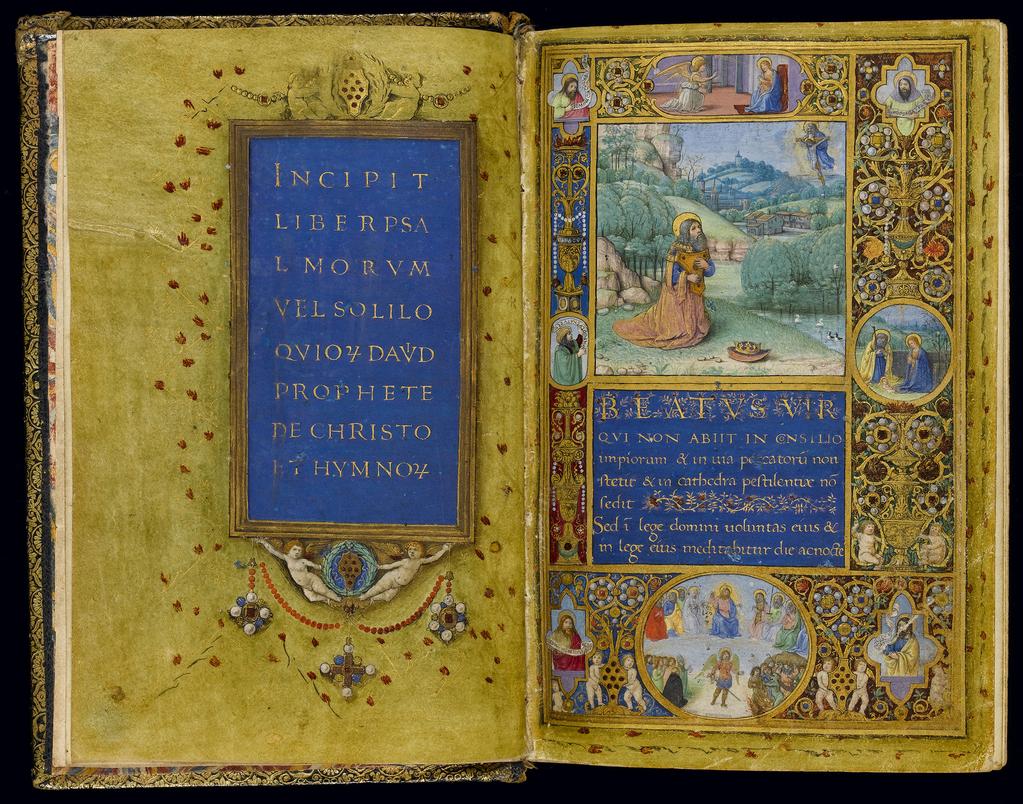 INCIPIT
LIBER PSA
LMORVM
VEL SOLILO
QVIOꝝ DAVID
PROPHETE
DE CHRISTO
ET HYMNOꝝ
BEATVS VIR
QVI NON ABIIT IN CNSILIO
impiorum & in uia peccatorū non
stetit & in cathedra pestilentiæ nō
sedit
Sed ī lege domini uoluntas eius &
in lege eius meditabitur die ac nocte